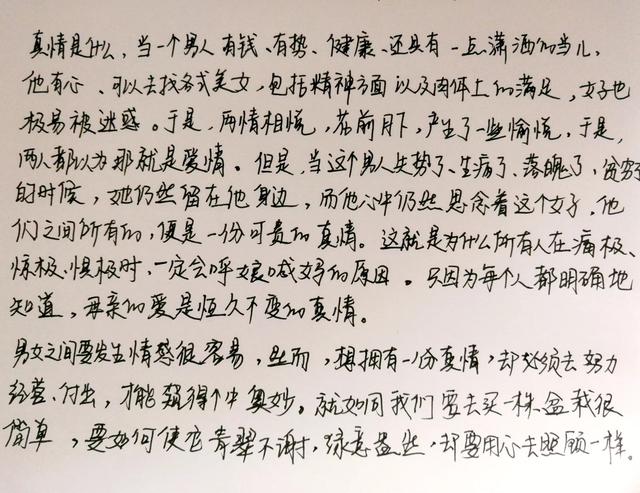 真情是什么，当一个男人有钱、有势、健康、还具有一点潇洒的当儿，
他有心、可以去找各式美女，包括精神方面以及肉体上的满足，女子也
极易被迷惑。于是，两情相悦，花前月下，产生了一些愉悦，于是，
两人都以为那就是爱情。但是，当这个男人失势了、生病了、落魄了，贫穷了
的时候，她仍然留在他身边，而他心中仍然思念着这个女子，他
们之间所有的，便是一份可贵的真情。这就是为什么所有人在痛极、
惊极、惧极时，一定会呼娘喊妈的原因。只因为每个人都明确地
知道，母亲的爱是恒久不变的真情。
男女之间要发生情感很容易，然而，想拥有一份真情，却必须去努力
经营、付出，才能获得个中奥妙。就如同我们要去买一株盆栽很
简单，要如何使它青翠不谢，绿意盎然，却要用心去照顾一样。